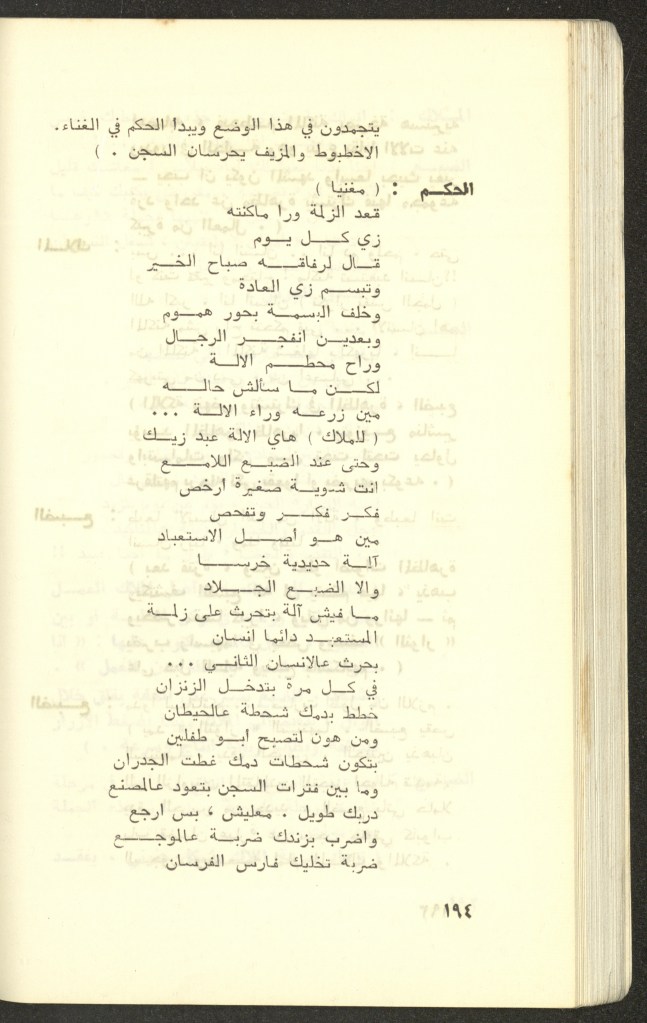 يتجمدون في هذا الوضع ويبدا الحكم في الغناء.
الاخطبوط والمزيف يحرسان السجن . )
الحكم : ( مغنيا )
قعد الزلمة ورا ماكنته
زي كل يوم
قال لرفاقه صباح الخير
وتبسم زي العادة
وخلف البسمة بحور هموم
وبعدين انفجر الرجال
وراح محطم الالة
لكن ما سألش حاله
مين زرعه وراء الالة ...
( للملاك ) هاي الالة عبد زيك
وحتى عند الضبع اللامع
انت شوية صغيرة ارخص
فكر فكر وتفحص
مين هو أصل الاستعباد
آلة حديدية خرسا
والا الضبع الجلاد
ما فيش آلة بتحرث على زلمة
المستعبد دائما انسان
بحرث عالانسان الثاني ...
في كل مرة بتدخل الزنزان
خطط بدمك شحطة عالحيطان
ومن هون لتصبح ابو طفلين
بتكون شحطات دمك غطت الجدران
وما بين فترات السجن بتعود عالمصنع
دربك طويل . معليش ، بس ارجع
واضرب بزندك ضربة عالموجع
ضربة تخليك فارس الفرسان
١٩٤